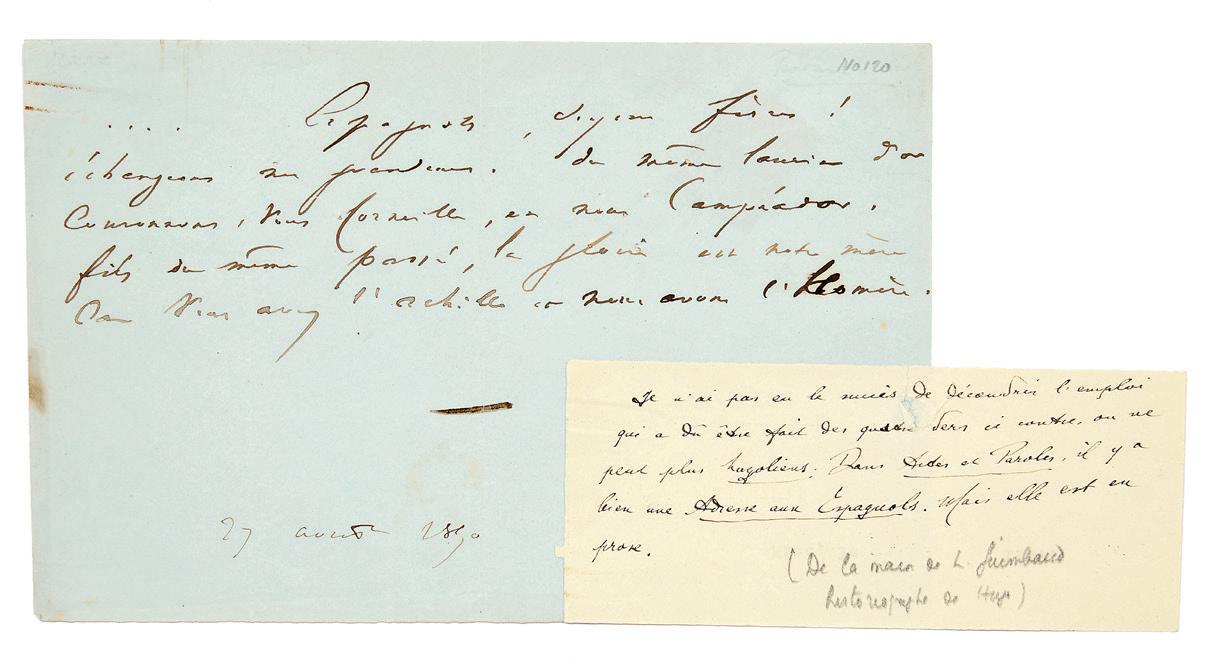 No 120
.... Espagnols, soyons frères !
échangeons nos grandeurs. du même laurier d'or
Couronnons, Vous Corneille, et nous Campéador.
fils du même passé, la gloire est notre mère
Car Vous avez l'achille et nous avons l'Homère.
27 août 1870
Je n'ai pas eu le succès de découvrir l'emploi
qui a dû être fait des quatre vers ci contre, on ne
peut plus hugoliens. Dans Actes et Paroles, il y a
bien une Adresse aux Espagnols. Mais elle est en
prose.
(De la main de L. Guimbaud
historiographe de Hugo)